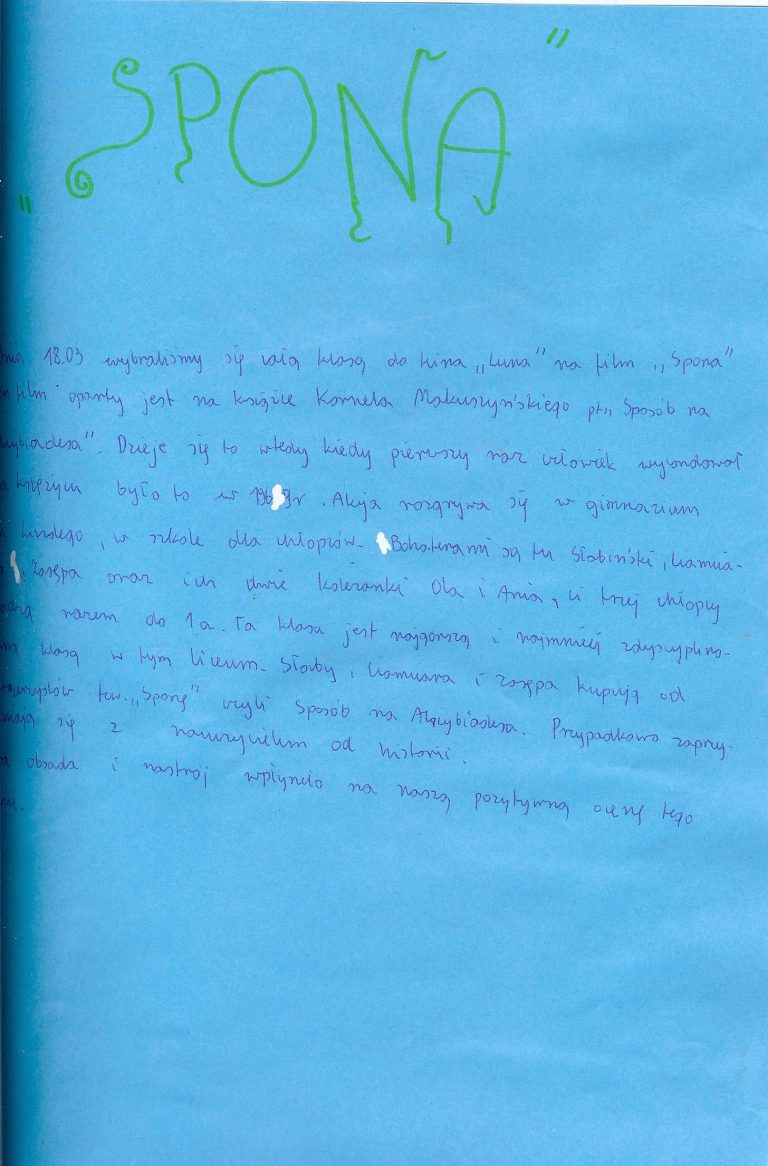 „SPONA"
nia 18.03 wybraliśmy się całą klasą do kina „Luna" na film „Spona"
n film oparty jest na książce Kornela Makuszyńskiego pt„ Sposób na
cybiadesa". Dzieje się to wtedy kiedy pierwszy raz człowiek wylądował
a księżycu było to w 1969r. Akcja rozgrywa się w gimnazjum
Lindego, w szkole dla chłopców. Bohaterami są tu Słabiński, Ciamcia-
a, Zasępa oraz ich dwie koleżanki Ola i Ania, ci trzej chłopcy
odzą razem do 1a. Ta klasa jest najgorszą i najmniej zdyscyplino-
ną klasą w tym liceum. Słaby, Ciamciara i Zasępa kupują od
tw. „Sponę" czyli Sposób na Alcybiadesa. Przypadkowo zaprzy-
się z nauczycielem od historii.
a obsada i nastrój wpłyneło na naszą pozytywną ocenę tego
mu.